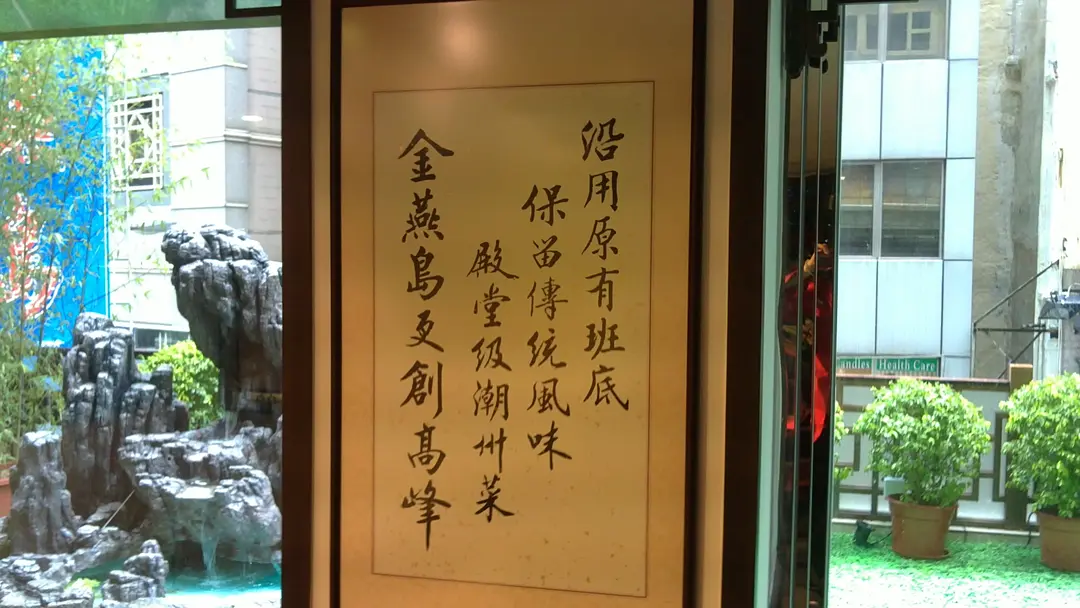 沿用原有班底
保留傳統風味
殿堂級潮州菜
金燕島更創高峰
ndles Health Care